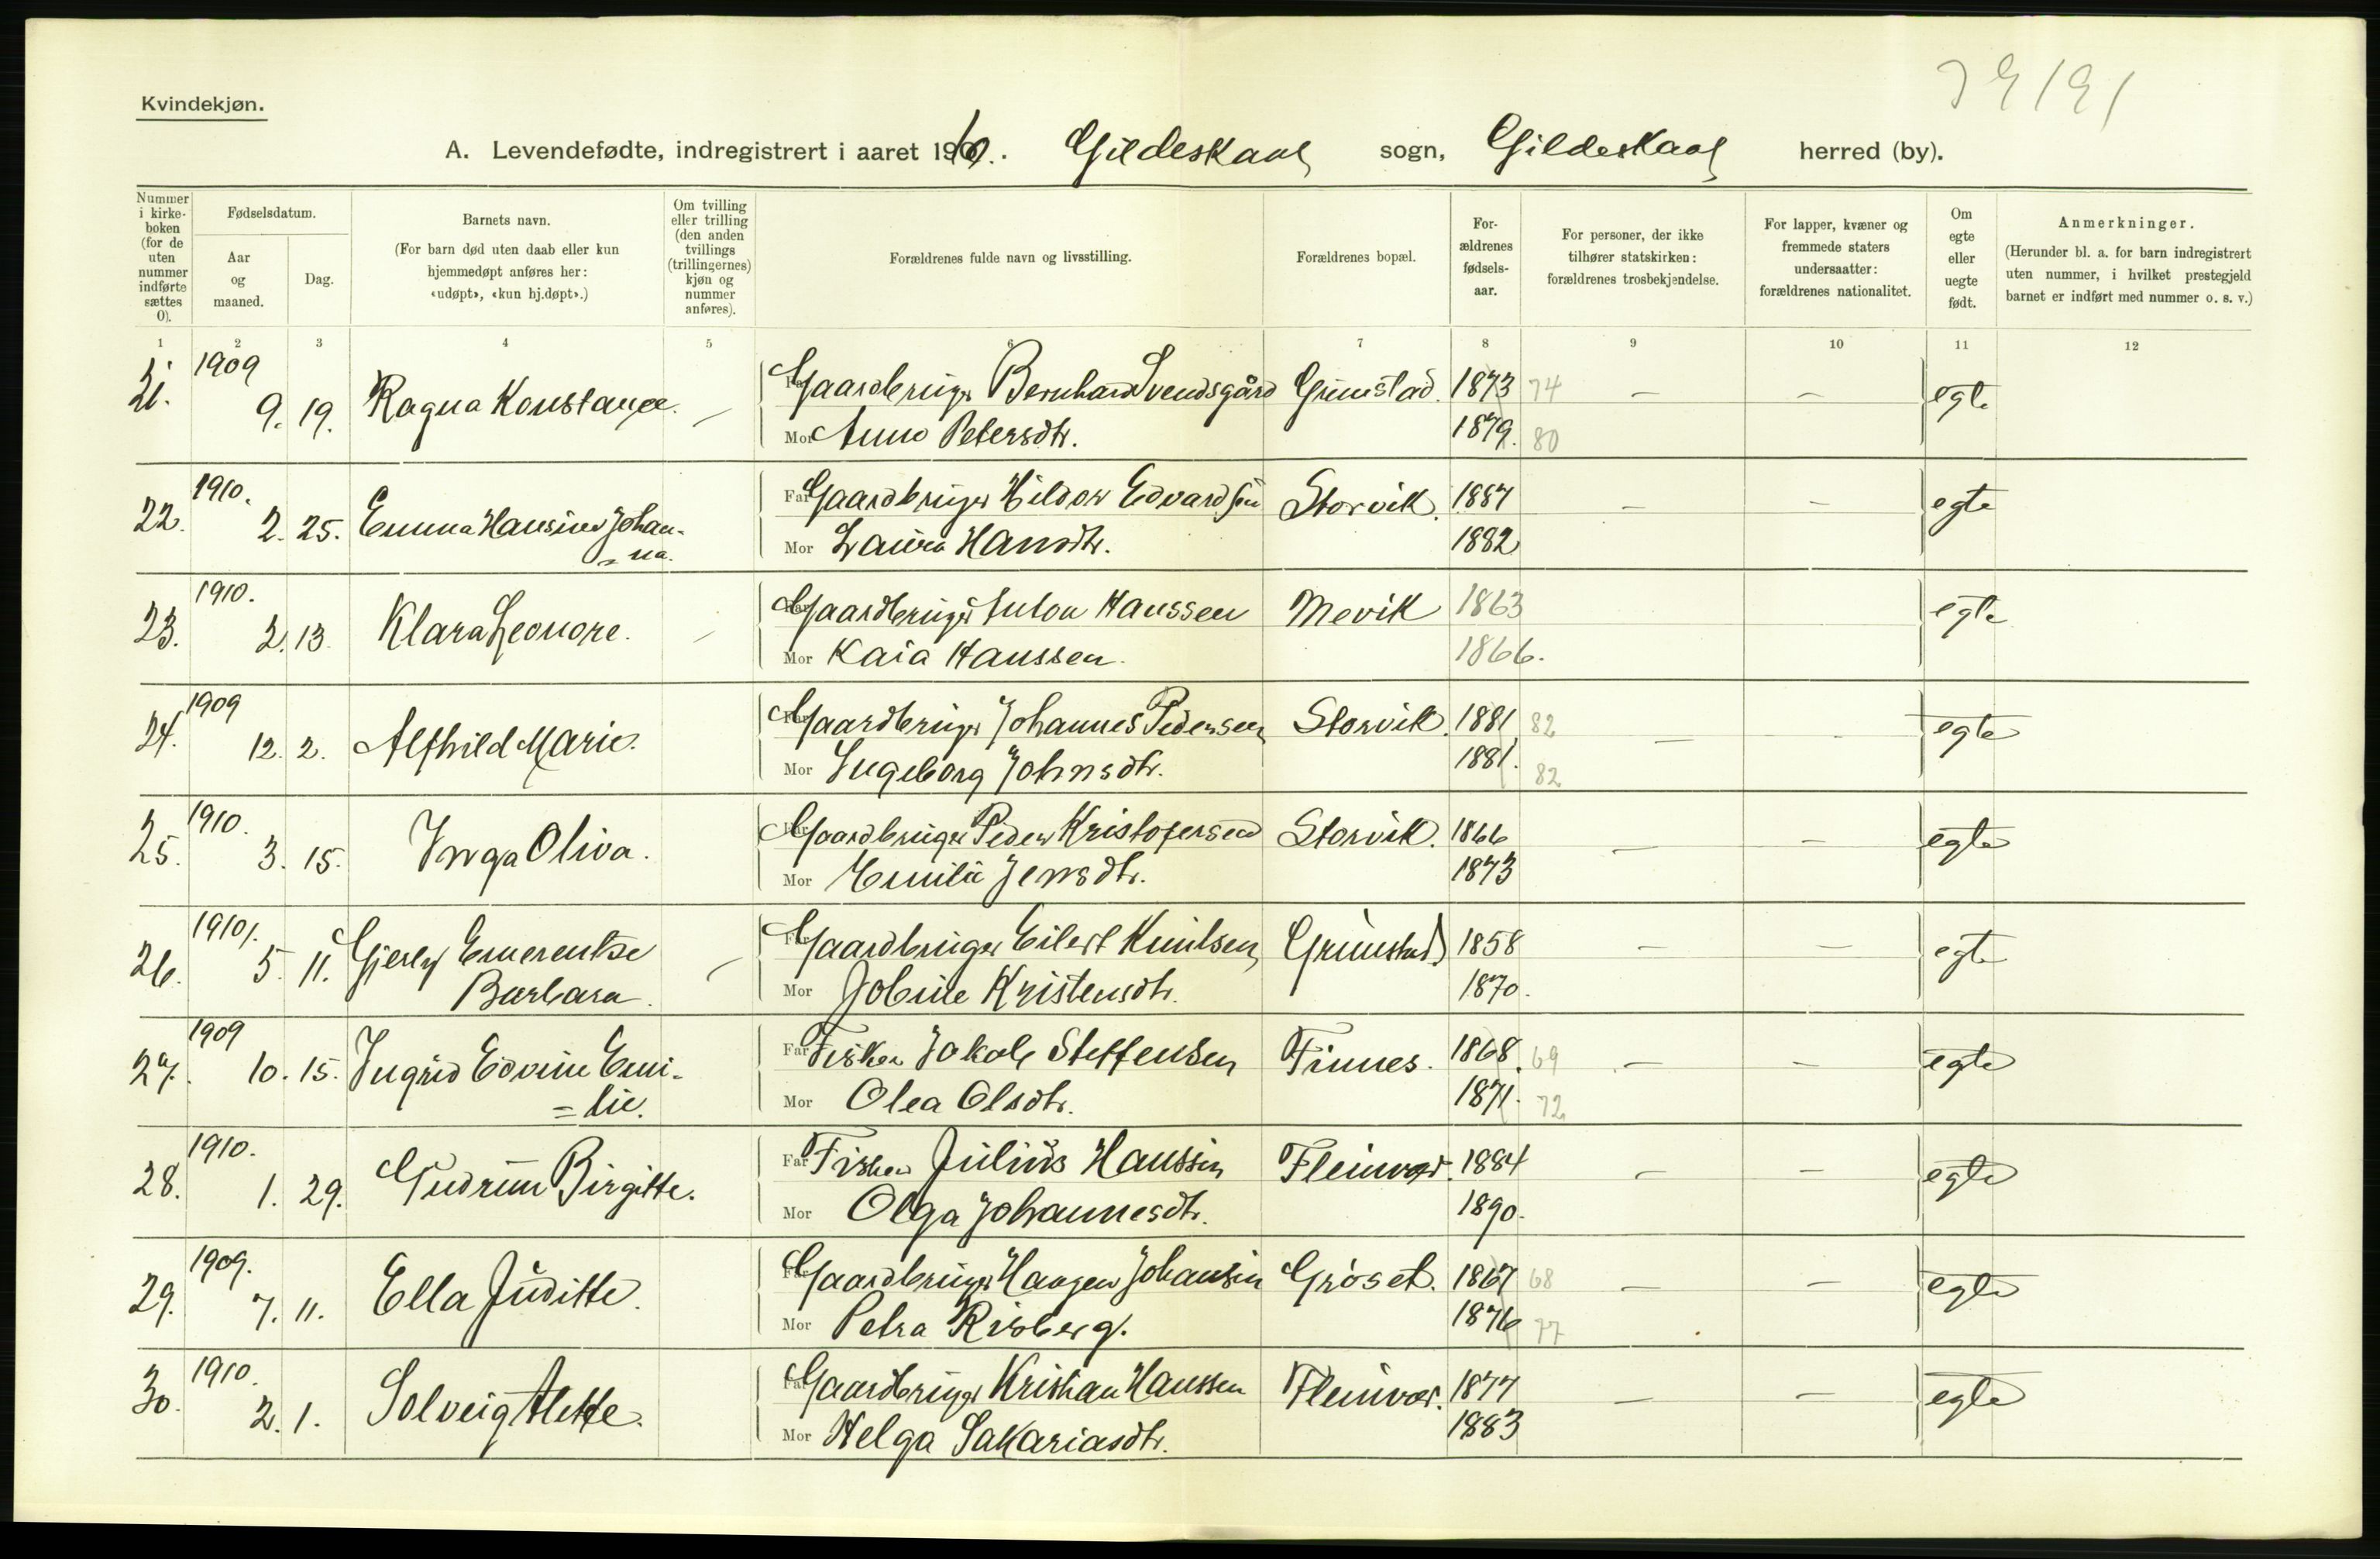 79191
Kvindekjøn.
A. Levendefødte, indregistrert i aaret 1910. Gildeskaal sogn, Gildeskaal herred (by).
Nummer i kirke-boken (for de uten nummer indførte sættes 0).
Fødselsdatum.
Aar og maaned.
Dag.
Barnets navn.
(For barn død uten daab eller kun hjemmedøpt anføres her: «udøpt», «kun hj.døpt».)
Om tvilling eller trilling (den anden tvillings (trillingernes) kjøn og nummer anføres).
Forældrenes fulde navn og livsstilling.
Forældrenes bopæl.
For-ældrenes fødsels-aar.
For personer, der ikke tilhører statskirken: forældrenes trosbekjendelse.
For lapper, kvæner og fremmede staters undersaatter: forældrenes nationalitet.
Om egte eller uegte født.
Anmerkninger.
(Herunder bl. a. for barn indregistrert uten nummer, i hvilket prestegjeld barnet er indført med nummer o. s. v.)
1 2 3 4 5 6 7 8 9 10 11 12
21. 1909 9. 19. Ragna Konstanse. — Far Gaardbruger Bernhard Svendsgård Grimstad. 1873 74 — — egte
Mor Anna Petersdtr. 1879. 80
22. 1910. 2. 25. Emma Hansine Johan-
=na.
Far Gaardbruger Hildor Edvardsen Storvik. 1887 — — egte
Mor Laura Hansdtr. 1882
23. 1910. 2. 13. Klara Leonore. — Far Gaardbruger Anton Hanssen Mevik 1863 egte
Mor Kaia Hanssen. 1866.
24. 1909 12. 2. Alfhild Marie. Far Gaardbruger Johannes Pedersen Storvik. 1881 82 — - egte
Mor Ingeborg Johnsdtr. 1881. 82
25. 1910. 3. 15. Inga Oliva. Far Gaardbruger Peder Kristofersen Storvik. 1866 — — egte
Mor Emilie Jensdtr. 1873
26. 1910. 5. 11. Gjerly Emerentse
Barbara. —
Far Gaardbruger Eilert Knutsen Grimstad 1858 — — egte
Mor Jobine Kristensdtr. 1870.
27. 1909 10. 15. Ingrid Edvine Emi-
=lie.
Far Fisker Jakob Steffensen Finnes. 1868. 69 — — egte
Mor Olea Olsdtr. 1871. 72
28. 1910. 1. 29. Gudrun Birgitte. Far Fisker Julius Hanssen Fleinvær. 1884 — — egte
Mor Olga Johannesdtr. 1890.
29. 1909. 7. 11. Ella Juditte. Far Gaardbruger Johansen Grøset. 1867 68 — — egte
Mor Petra Risberg. 1876 77
30. 1910. 2. 1. Solveig Alette. Far Gaardbruger Kristian Hanssen Fleinvær. 1877 — — egte
Mor Helga Sakariasdtr. 1883